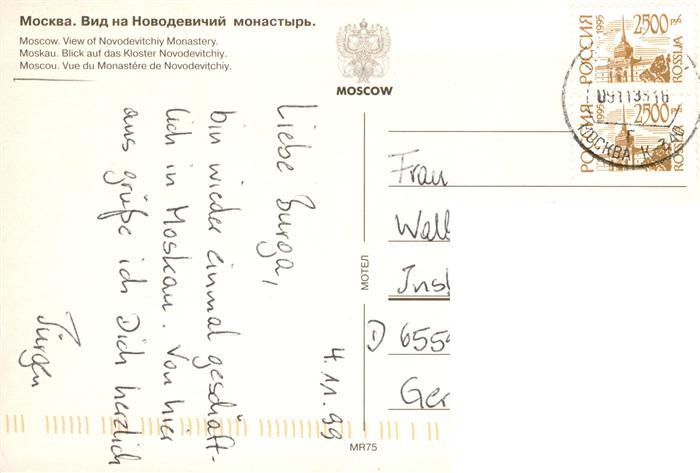 Москва. Вид на Новодевичий монастырь.
Moscow. View of Novodevitchiy Monastery.
Moskau. Blick auf das Kloster Novodevitchiy.
Moscou. Vue du Monastére de Novodevitchiy.
MOSCOW
РОССИЯ 1995
2500 р.
ROSSIJA
РОССИЯ 1995
2500 р.
ROSSIJA
МОСКВА
4.11.99
Liebe Burga,
bin wieder einmal geschäft-
lich in Moskau. Von hier
aus grüße ich Dich herzlich
Jürgen
МОТЕЛ
MR75
Frau
Wall
Inst
D 6559
Ger